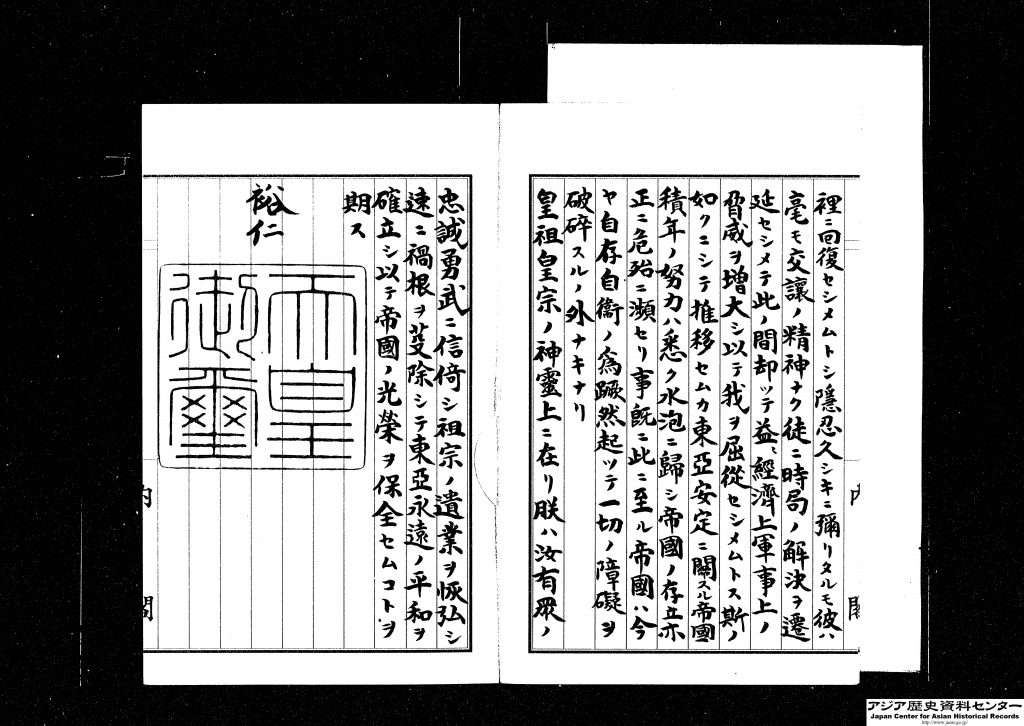 裡ニ囘復セシメムトシ隱忍久シキニ彌リタルモ彼ハ
毫モ交讓ノ精神ナク徒ニ時局ノ解決ヲ遷
延セシメテ此ノ間却ツテ益〻經濟上軍事上ノ
脅威ヲ增大シ以テ我ヲ屈從セシメムトス斯ノ
如クニシテ推移セムカ東亞安定ニ關スル帝國
積年ノ努力ハ悉ク水泡ニ歸シ帝國ノ存立亦
正ニ危殆ニ瀕セリ事既ニ此ニ至ル帝國ハ今
ヤ自存自衞ノ爲蹶然起ツテ一切ノ障礙ヲ
破碎スルノ外ナキナリ
皇祖皇宗ノ神靈上ニ在リ朕ハ汝有眾ノ
内閣
忠誠勇武ニ信倚シ祖宗ノ遺業ヲ恢弘シ
速ニ禍根ヲ芟除シテ東亞永遠ノ平和ヲ
確立シ以テ帝國ノ光榮ヲ保全セムコトヲ
期ス
裕仁
天皇
御璽
内閣
アジア歴史資料センター
Japan Center for Asian Historical Records
http://www.jacar.go.jp/